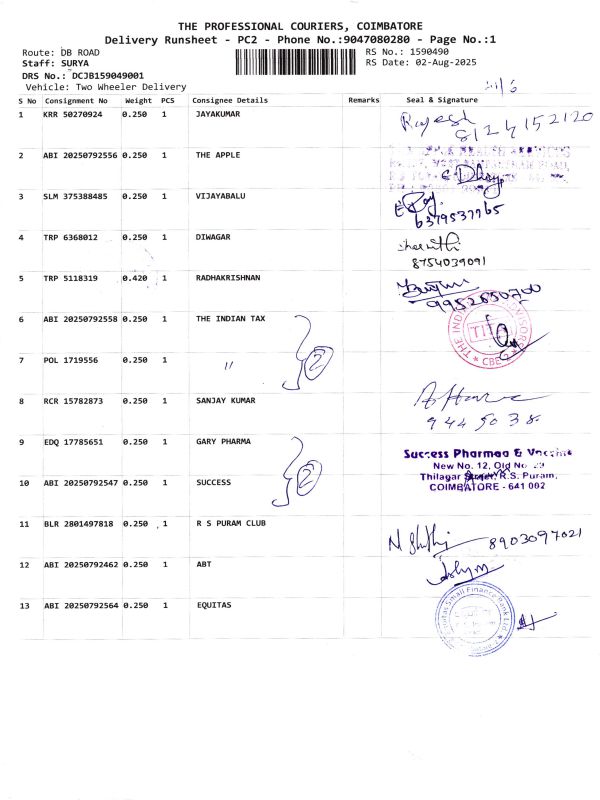 THE PROFESSIONAL COURIERS, COIMBATORE
Delivery Runsheet - PC2 - Phone No.:9047080280 - Page No.:1
Route: DB ROAD
RS No.: 1590490
Staff: SURYA
RS Date: 02-Aug-2025
DRS No.: DCJB159049001
Vehicle: Two Wheeler Delivery
S No Consignment No Weight PCS Consignee Details Remarks Seal & Signature
1 KRR 50270924 0.250 1 JAYAKUMAR Rajesh
8124152120
2 ABI 20250792556 0.250 1 THE APPLE
3 SLM 375388485 0.250 1 VIJAYABALU
6379537765
4 TRP 6368012 0.250 1 DIWAGAR
8754039091
5 TRP 5118319 0.420 1 RADHAKRISHNAN
9952650700
6 ABI 20250792558 0.250 1 THE INDIAN TAX
2
TITA
CBE
7 POL 1719556 0.250 1 "
8 RCR 15782873 0.250 1 SANJAY KUMAR
9445038
9 EDQ 17785651 0.250 1 GARY PHARMA
Success Pharmaa & Vaccine
New No. 12, Old No. 29
Thilagar Street, R.S. Puram,
COIMBATORE - 641 002
2
10 ABI 20250792547 0.250 1 SUCCESS
11 BLR 2801497818 0.250 1 R S PURAM CLUB
8903097021
12 ABI 20250792462 0.250 1 ABT
13 ABI 20250792564 0.250 1 EQUITAS
Equitas Small Finance Bank Ltd